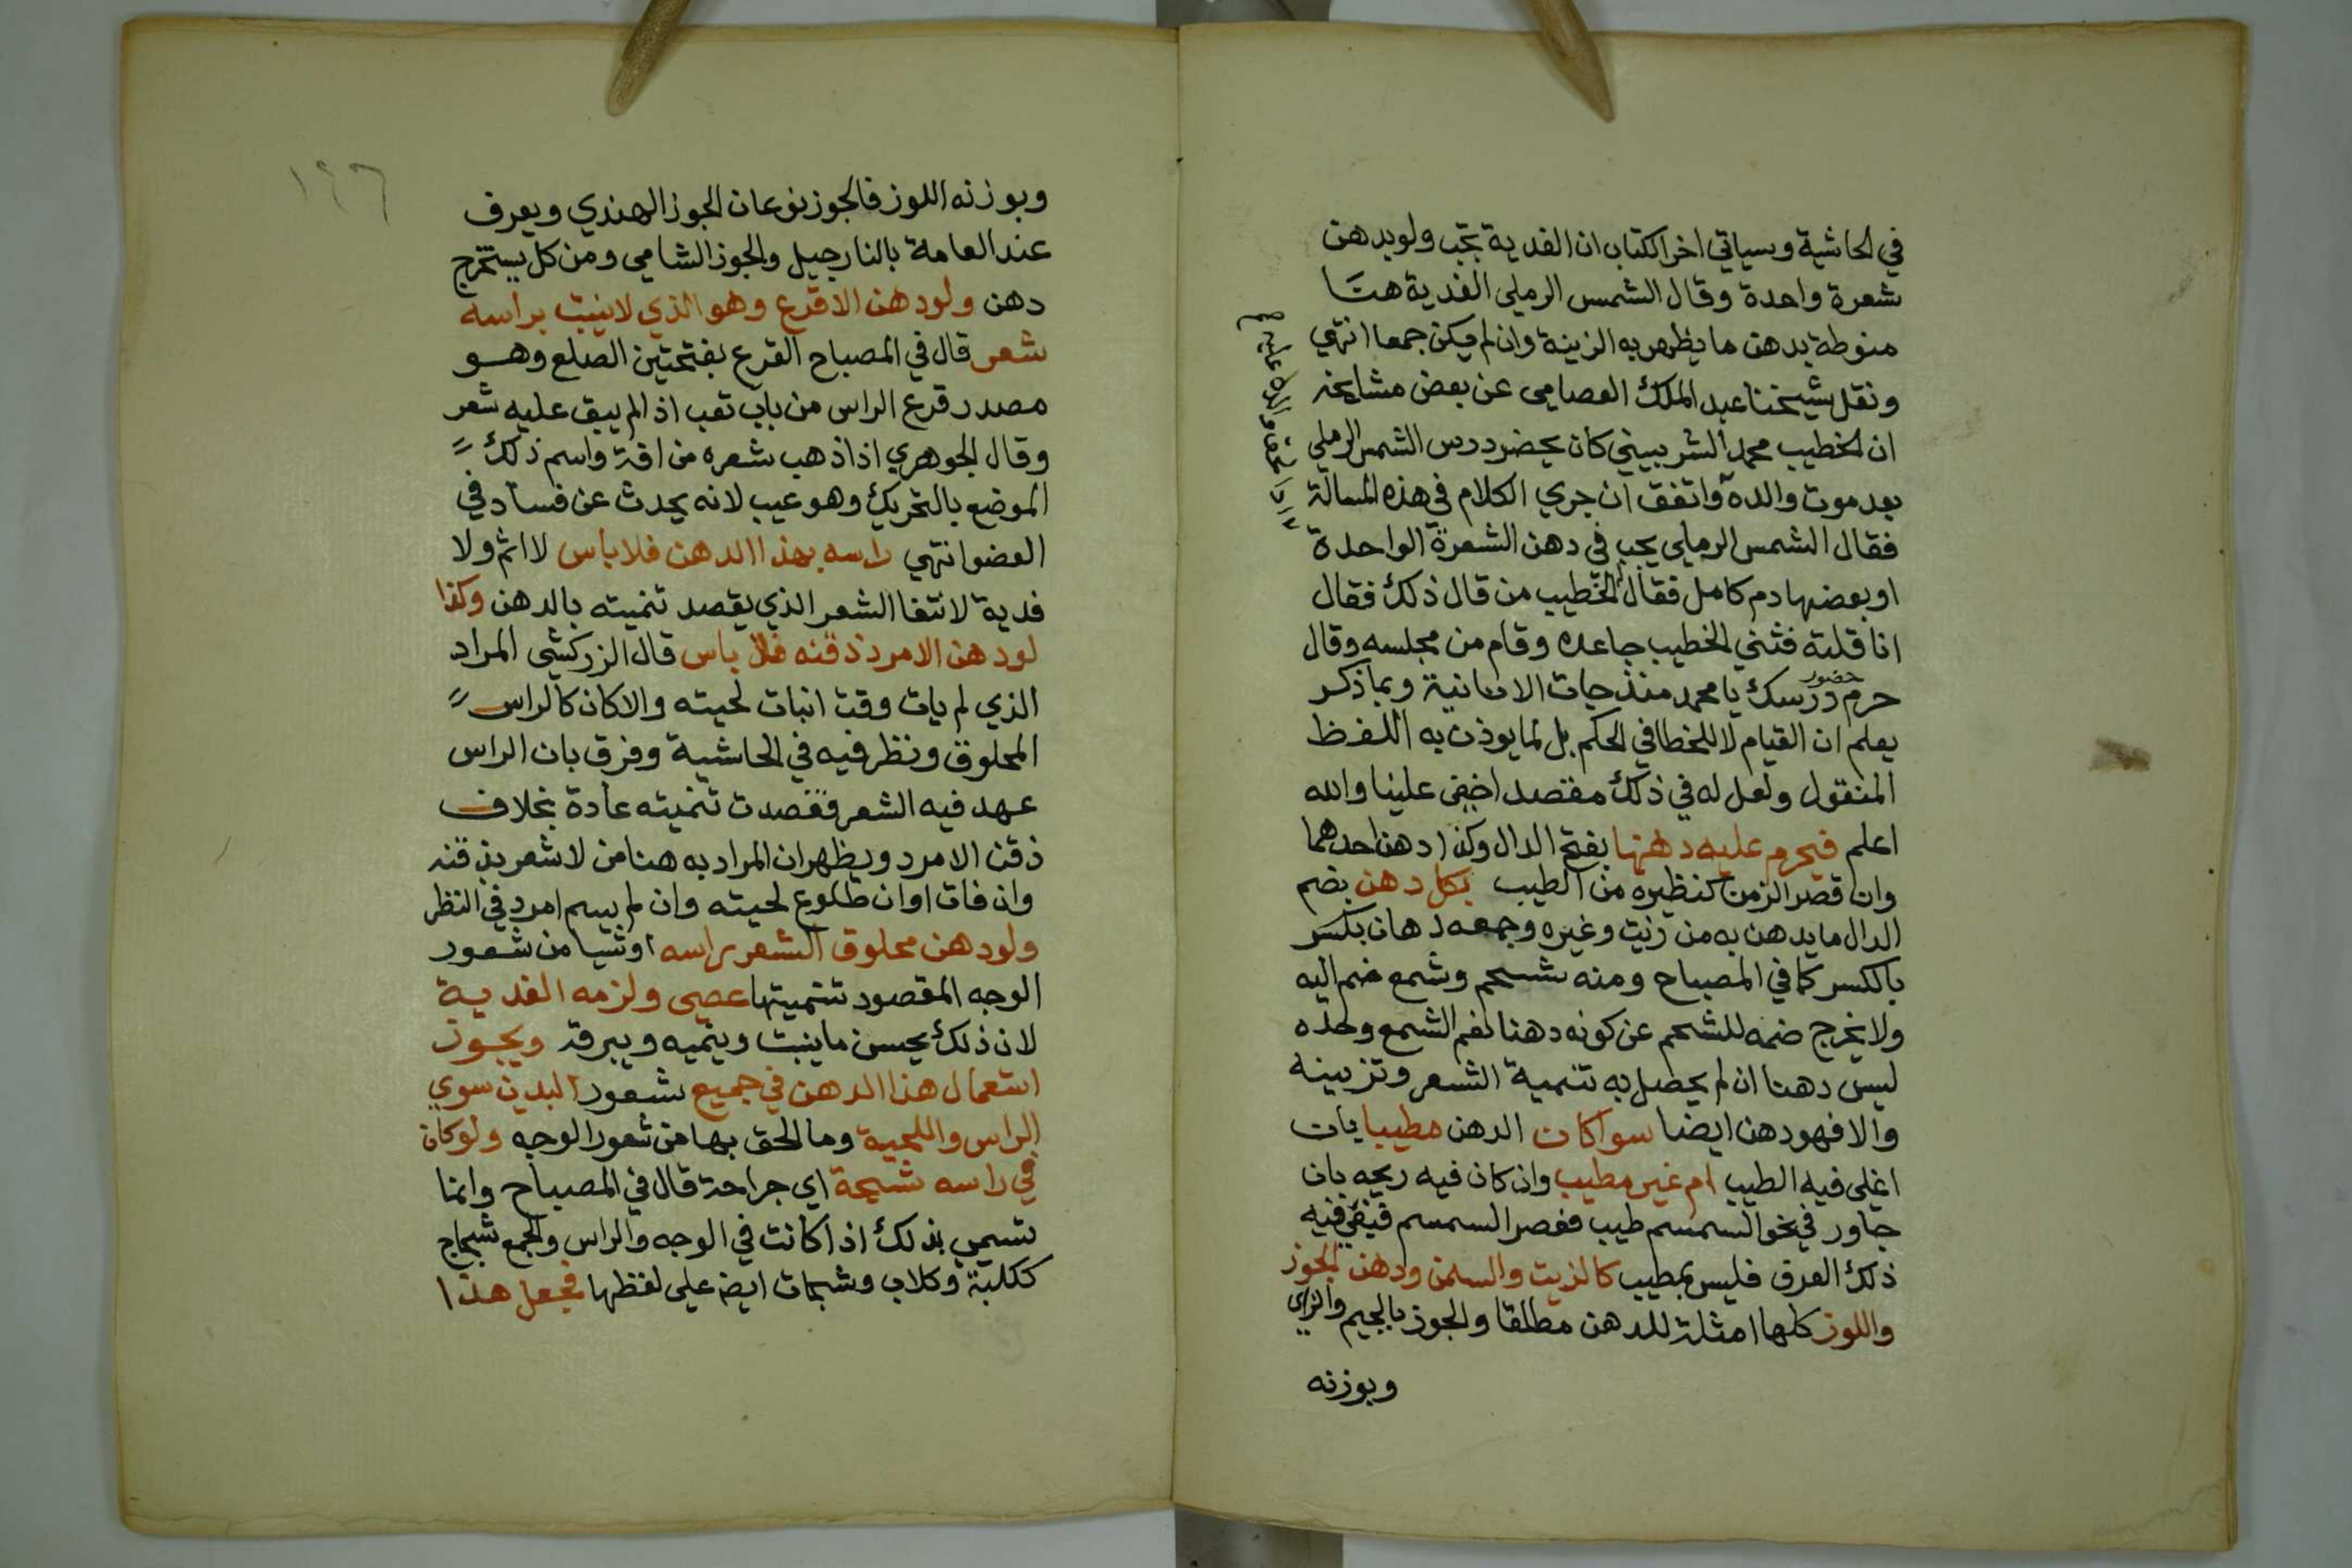 في الحاشية وسياتي اخر الكتاب ان الفدية تجب ولو بدهن
شعرة واحدة وقال الشمس الرملي الفدية هنا
منوطة بدهن ما يظهر به الزينة وان لم يكن جمعا انتهي
ونقل شيخنا عبد الملك العصامي عن بعض مشايخه
ان الخطيب محمد الشربيني كان يحضر درس الشمس الرملي
بعد موت والده واتفق ان جري الكلام في هذه المسالة
فقال الشمس الرملي يجب في دهن الشعرة الواحدة
او بعضها دم كامل فقال الخطيب من قال ذلك فقال
انا قلته فثني الخطيب جاعده وقام من مجلسه وقال
حرم حضور درسك يا محمد منذ جات الانانية وبما ذكر
يعلم ان القيام لا للخطا في الحكم بل لما يوذن به اللفظ
المنقول ولعل له في ذلك مقصد اخفي علينا والله
اعلم فيحرم عليه دهنها بفتح الدال وكذا دهن احدهما
وان قصر الزمن كنظيره من الطيب بكل دهن بضم
الدال ما يدهن به من زيت وغيره وجمعه دهان بكسر
بالكسر كما في المصباح ومنه شحم وشمع ضم اليه
ولا يخرج ضمه للشحم عن كونه دهنا نعم الشمع وحده
ليس دهنا ان لم يحصل به تنمية الشعر وتزيينه
والا فهو دهن ايضا سوا كان الدهن مطيبا بان
اغلي فيه الطيب ام غير مطيب وان كان فيه ريحه بان
جاور في نحو السمسم طيب فعصر السمسم فبقي فيه
ذلك العرق فليس بمطيب كالزيت والسمن ودهن الجوز
واللوز كلها امثلة للدهن مطلقا والجوز بالجيم والزاي
وبوزنه
١٢٦
وبوزنه اللوز فالجوز نوعان الجوز الهندي ويعرف
عند العامة بالنارجيل والجوز الشامي ومن كل يستخرج
دهن ولو دهن الاقرع وهو الذي لا ينبت براسه
شعر قال في المصباح القرع بفتحتين الصلع وهو
مصدر قرع الراس من باب تعب اذا لم يبق عليه شعر
وقال الجوهري اذا ذهب شعره من افة واسم ذلك
الموضع بالتحريك وهو عيب لانه يحدث عن فساد في
العضو انتهي راسه بهذا الدهن فلا باس لا اثم ولا
فدية لانتفا الشعر الذي يقصد تنميته بالدهن وكذا
لو دهن الامرد ذقنه فلا باس قال الزركشي المراد
الذي لم يات وقت انبات لحيته والا كان كالراس
المحلوق ونظر فيه في الحاشية وفرق بان الراس
عهد فيه الشعر فقصدت تنميته عادة بخلاف
ذقن الامرد ويظهر ان المراد به هنا من لا شعر بذقنه
وان فات اوان طلوع لحيته وان لم يسم امرد في النظر
ولو دهن محلوق الشعر براسه او شيا من شعور
الوجه المقصود تنميتها عصي ولزمه الفدية
لان ذلك يحسن ما ينبت وينميه ويبرقه ويجوز
استعمال هذا الدهن في جميع شعور البدن سوي
الراس واللحية وما الحق بها من شعور الوجه ولو كان
في راسه شجة اي جراحة قال في المصباح وانما
تسمي بذلك اذا كانت في الوجه والراس والجمع شجاج
ككلبة وكلاب وشجات ايضا علي لفظها فجعل هذا